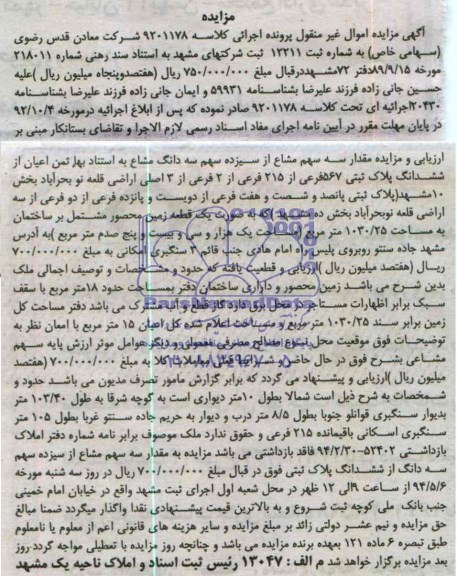 مزایده
آگهی مزایده اموال غیر منقول پرونده اجرائی کلاسه ۹۲۰۱۱۷۸ شرکت معادن قدس رضوی
(سهامی خاص) به شماره ثبت ۱۲۲۱۱ ثبت شرکتهای مشهد به استناد سند رهنی شماره ۲۱۸۰۱۱
مورخه ۸۹/۹/۱۵دفتر ۷۲مشهددرقبال مبلغ ۷۵۰/۰۰۰/۰۰۰ ریال (هفتصدوپنجاه میلیون ریال )علیه
حسین جانی زاده فرزند علیرضا بشناسنامه ۵۹۹۳۱ و ایمان جانی زاده فرزند علیرضا بشناسنامه
۲۰۴۳۰اجرائیه ای تحت کلاسه ۹۲۰۱۱۷۸ صادر نموده که پس از ابلاغ اجرائیه درمورخه ۹۲/۱۰/۴
در پایان مهلت مقرر در آیین نامه اجرای مفاد اسناد رسمی لازم الاجرا و تقاضای بستانکار مبنی بر
ارزیابی و مزایده مقدار سه سهم مشاع از سیزده سهم سه دانگ مشاع به استناد بهاء ثمن اعیان از
ششدانگ پلاک ثبتی ۵۶۷فرعی از ۲۱۵ فرعی از ۲ فرعی از ۳ اصلی اراضی قلعه نو بحرآباد بخش
۱۰مشهد(پلاک ثبتی پانصد و شصت و هفت فرعی از دویست و پانزده فرعی از دو فرعی از سه
اراضی قلعه نوبحرآباد بخش ده مشهد )که به صورت یک قطعه زمین محصور مشتمل بر ساختمان
به مساحت ۱۰۳۰/۲۵ متر مربع ( مساحت یک هزار و سی و بیست و پنج صدم متر مربع )به آدرس
مشهد جاده سنتو روبروی پلیس راه امام هادی جنب قائم ۳ سنگبری اسکانی به مبلغ ۷۰۰/۰۰۰/۰۰۰
ریال (هفتصد میلیون ریال )ارزیابی و قطعیت یافته که حدود و مشخصات و توصیف اجمالی ملک
بدین شرح می باشد زمین محصور و دارای ساختمان دفتر بمساحت حدود ۱۸متر مربع با سقف
سبک برابر اظهارات مستاجر در محل برق دارد گاز قطع و آب مشترک می باشد دفتر مساحت کل
زمین برابر سند ۱۰۳۰/۲۵ متر مربع و مساحت اعلام شده کل اعیان ۱۵ متر مربع با امعان نظر به
توضیحات فوق موقعیت محل نوع مصالح مصرفی معمولی و دیگر عوامل موثر ارزش پایه سه سهم
مشاعی بشرح فوق در حال حاضر و شرایط قبلی معاملات کلا به مبلغ ۷۰۰/۰۰۰/۰۰۰ (هفتصد
میلیون ریال )ارزیابی و پیشنهاد می گردد که برابر گزارش مامور تصرف مدیون می باشد حدود و
مشخصات به شرح ذیل است شمالا بطول ۱۰متر دیواری است به کوچه شرقا به طول ۱۰۳/۴۰ متر
بدیوار سنگبری قوانلو جنوبا بطول ۸/۵ متر درب و دیوار به حریم جاده سنتو غربا بطول ۱۰۵ متر
سنگبری اسکانی باقیمانده ۲۱۵ فرعی و حقوق ندارد ملک موصوف برابر نامه شماره دفتر املاک
بازداشتی ۵۲۴۰۲-۹۴/۲/۳۰ فاقد بازداشتی می باشد مزایده به مقدار سه سهم مشاع از سیزده سهم
سه دانگ از ششدانگ پلاک ثبتی فوق در قبال مبلغ ۷۰۰/۰۰۰/۰۰۰ ریال در روز سه شنبه مورخه
۹۴/۵/۶ از ساعت ۹الی ۱۲ ظهر در محل شعبه اول اجرای ثبت مشهد واقع در خیابان امام خمینی
جنب بانک ملی کوچه ثبت شروع و به بالاترین قیمت پیشنهادی نقدا واگذار میگردد ضمنا مبالغ
حق مزایده و نیم عشر دولتی زائد بر مبلغ مزایده و سایر هزینه های قانونی اعم از معلوم یا نامعلوم
طبق تبصره ۶ ماده ۱۲۱ بعهده برنده مزایده می باشد و چنانچه روز مزایده با تعطیلی مواجه گردد روز
بعد مزایده برگزار خواهد شد م الف : ۱۳۰۴۷ رئیس ثبت اسناد و املاک ناحیه یک مشهد